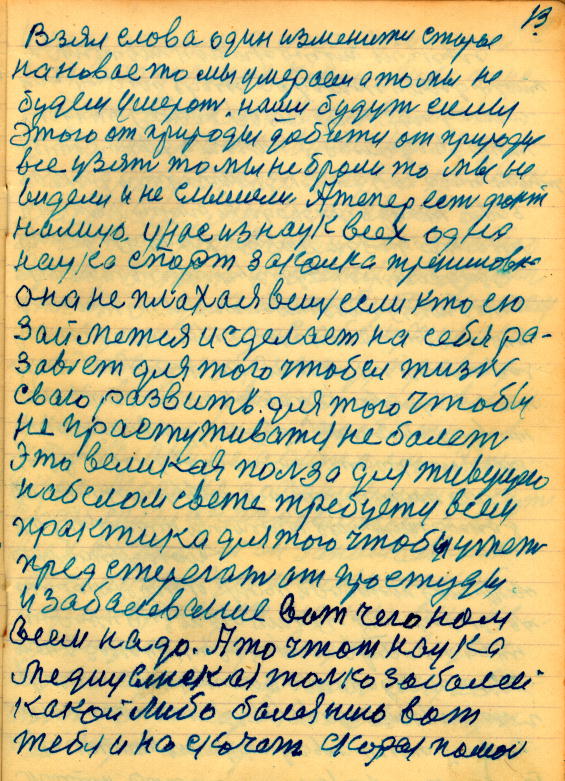 13
Взял слова один изменити старое
на новае то мы умераем а то мы не
будем умерот. нами будут силы
Этого от природы добити от природы
все узят то мы не броли то мы не
видели и не слышели. А тепер ест факт
на лицо. у нас из наук всех одна
наука спорт закалка тренировка
она не плахая вещ если кто ею
займется и сделает на себя ра-
завет для того чтобы жизн
сваю развить. для того чтобы
не прастуживатя не балет
Это великая полза для живущего
на белом свете требуетя всем
практика для того чтобы умет
предстерегат от простуды
и забалевание вот чего нам
всем надо. А то что наука
медицынская толко заболей
какой либо балезню вот
тебя и на скочат скорая помощ